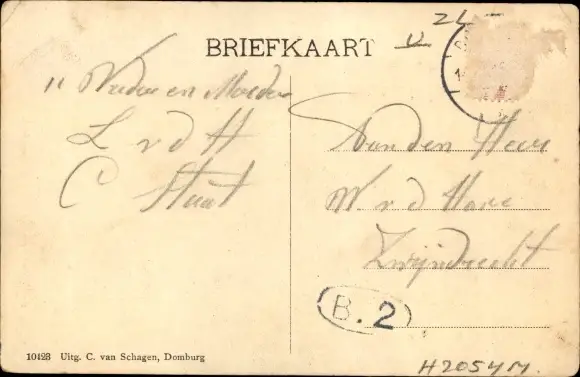 BRIEFKAART
Vader en Moeder
L v d H
C Staat
Aan den Heer
W. v d Have
Zwijndrecht
B. 2
10423 Uitg. C. van Schagen, Domburg
H2054M.